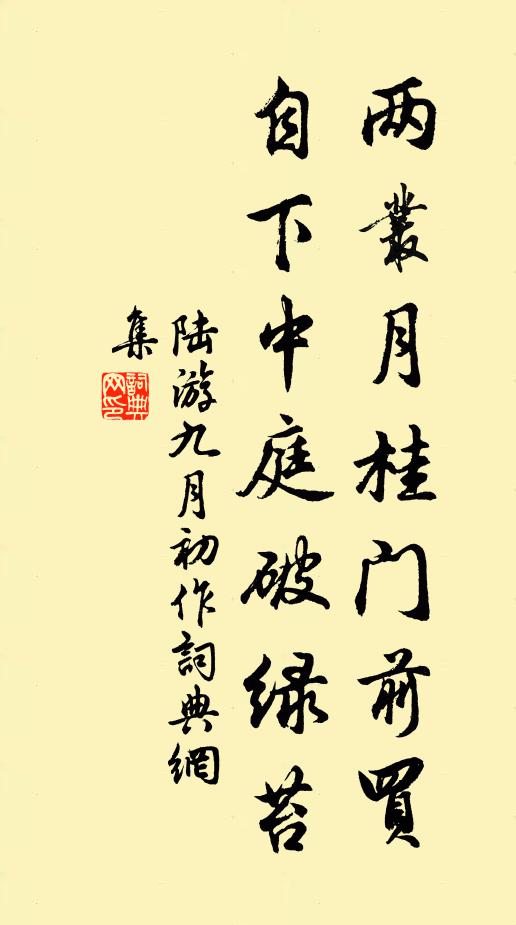 两叢月桂门前買
自下中庭破緑苔
陆游九月初作詞典網
集
詞典网印